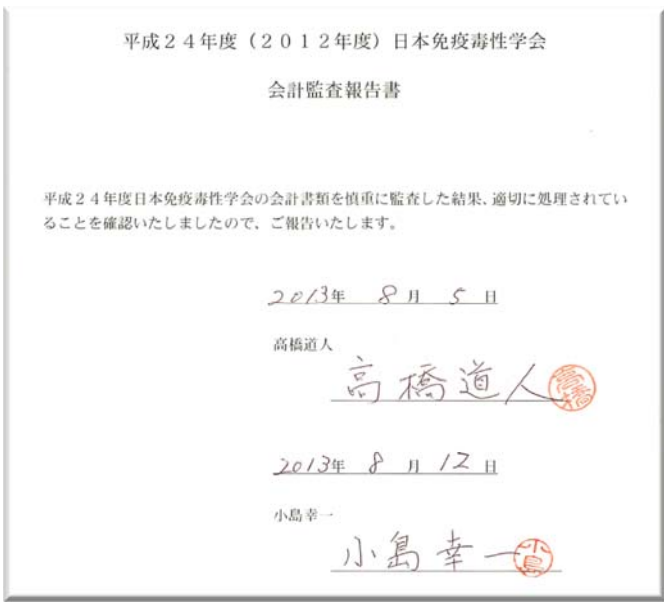 平成２４年度（２０１２年度）日本免疫毒性学会
会計監査報告書
平成２４年度日本免疫毒性学会の会計書類を慎重に監査した結果、適切に処理されてい
ることを確認いたしましたので、ご報告いたします。
2013年 8月 5日
高橋道人
高橋道人 高橋
2013年 8月 12日
小島幸一
小島幸一 小島